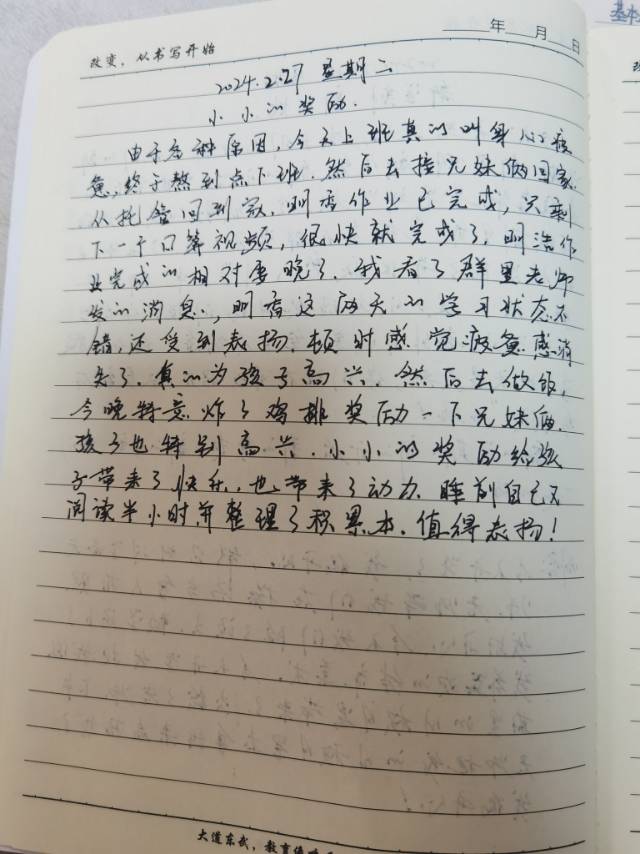 基本
年 月 日
改变，从书写开始
2024.2.27 星期二
小小的奖励.
由于各种原因，今天上班真的叫身心疲
惫，终于熬到点下班.然后去接兄妹俩回家.
从托管回到家.明香作业已完成，只剩
下一个口算视频，很快就完成了.明浩作
业完成的相对要晚了.我看了群里老师
发的消息，明香这两天的学习状态不
错，还受到表扬.顿时感觉疲惫感消
失了.真的为孩子高兴.然后去做饭，
今晚特意炸了鸡排奖励一下兄妹俩.
孩子也特别高兴.小小的奖励给孩
子带来了快乐，也带来了动力.睡前自己又
阅读半小时,并整理了积累本.值得表扬！
大道东武，教育